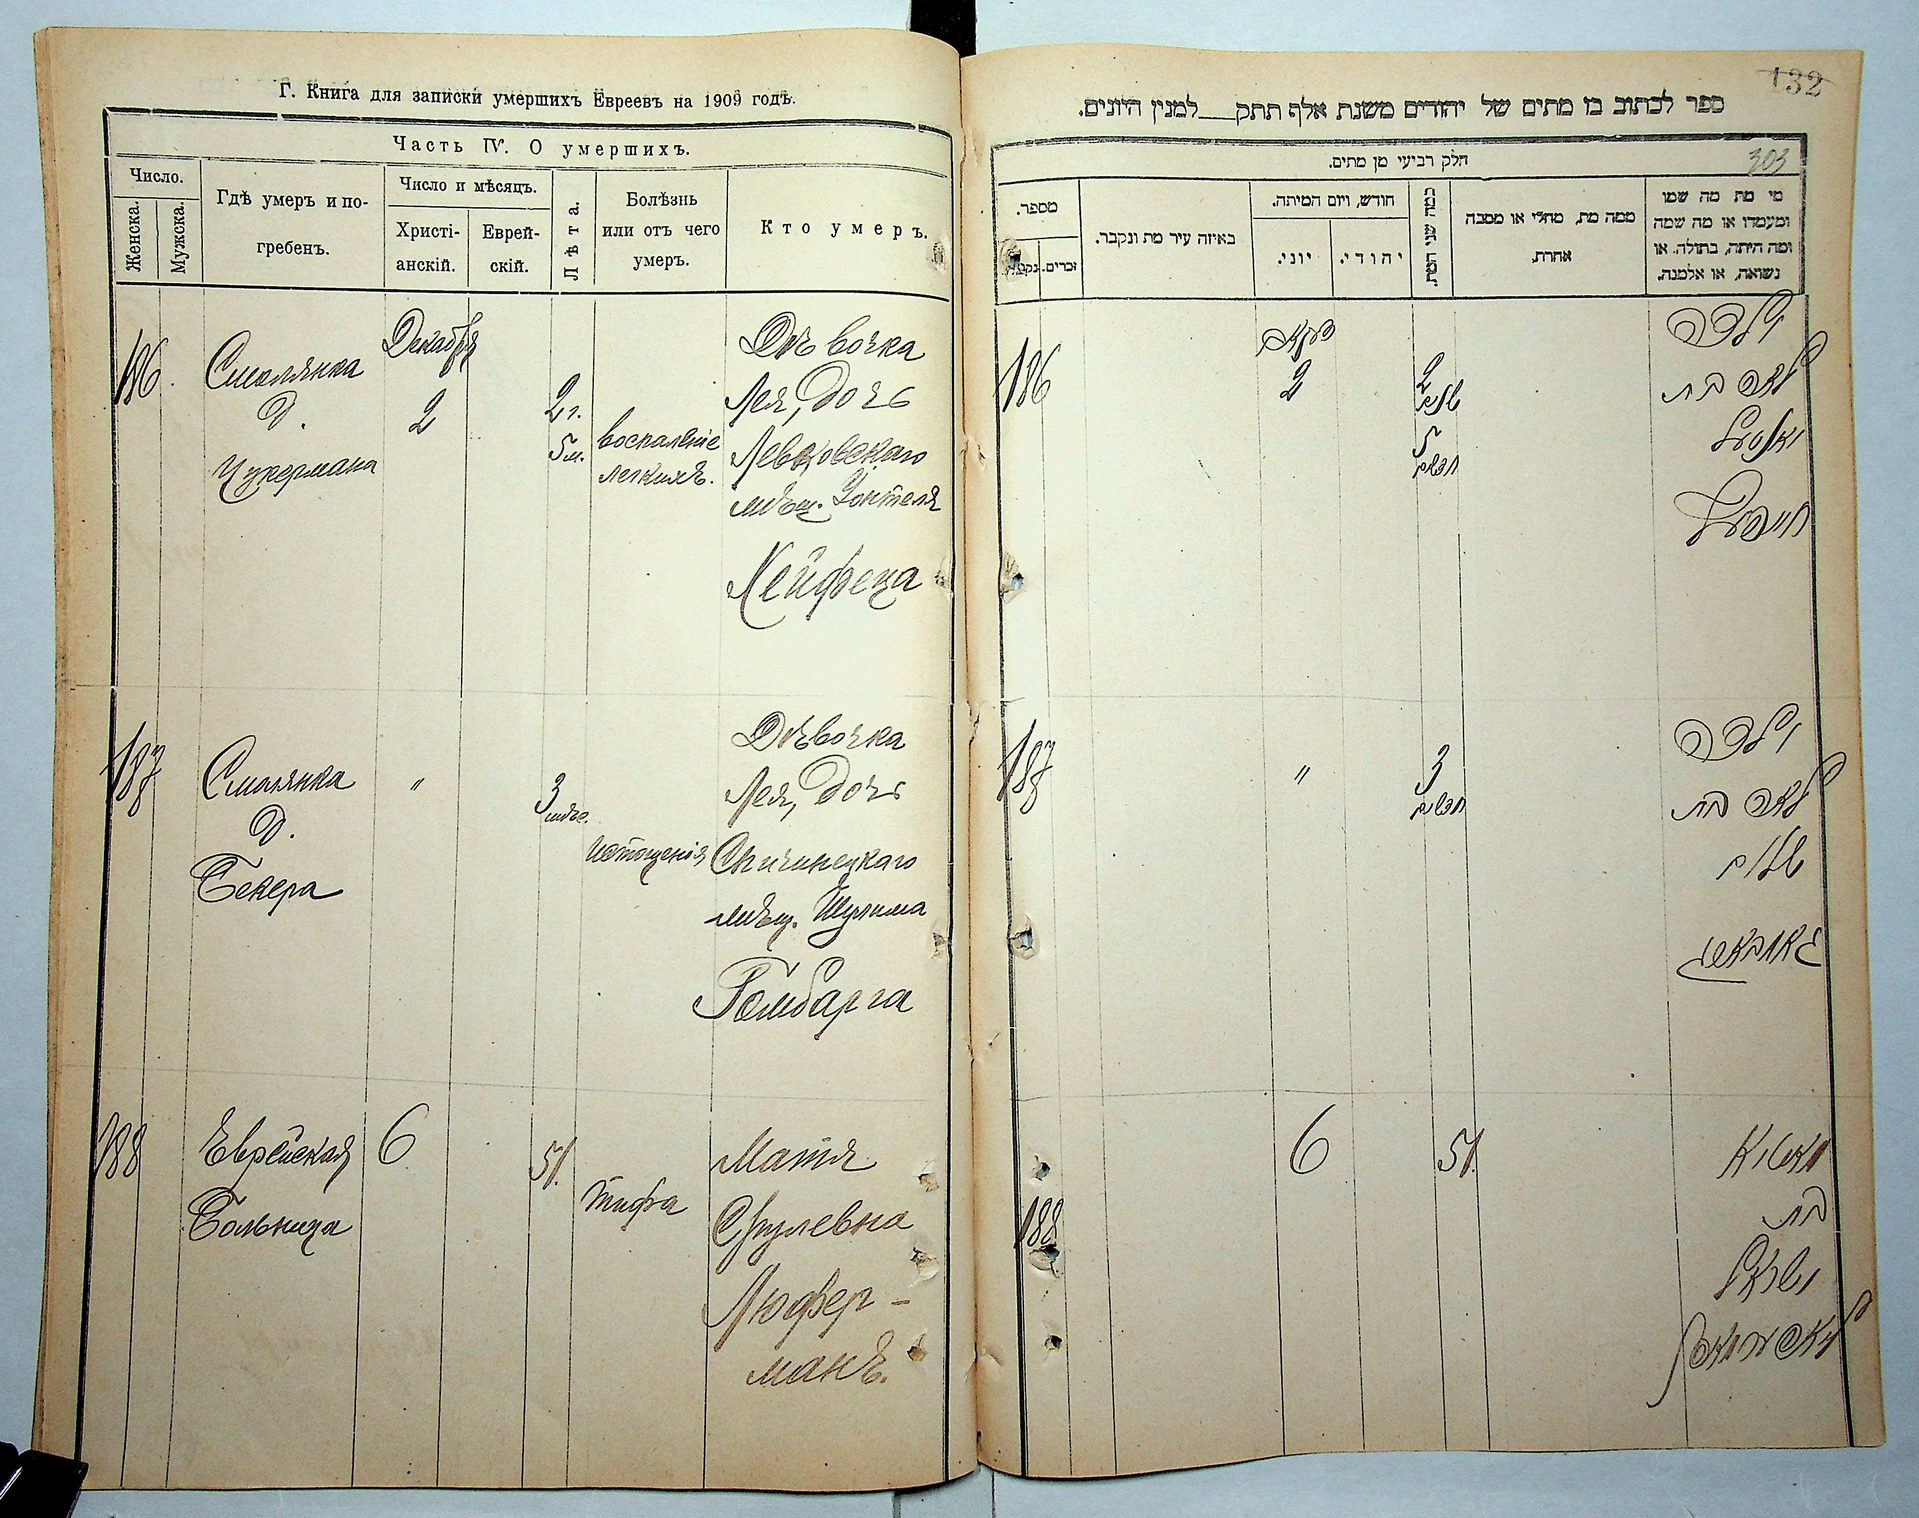 Г. Книга для записки умершихъ Евреевъ на 1909 годъ.
Часть IV. О умершихъ.
Число.
Женска.
Мужска.
Гдѣ умеръ и по-
гребенъ.
Число и мѣсяцъ.
Христі-
анскій.
Еврей-
скій.
Лѣта.
Болѣзнь
или отъ чего
умеръ.
Кто умеръ.
186.
Смолянка
д.
Цукермана
Декабря
2
2 г.
5 м.
воспаленіе
легкихъ.
Дѣвочка
Лея, дочь
Левковскаго
мѣщ.
Хейфеца
187
Смолянка
д.
Бекера
"
3
мѣс.
истощенія
Дѣвочка
Лея, дочь
мѣщ. Шулима
Гомбарга
188
Еврейская
Больница
6
51.
тифа
Матля
Срулевна
Люфер-
манъ.
132
303
ספר לכתוב בו מתים של יהודים משנת אלף תתק למנין היונים.
חלק רביעי מן מתים.
מספר.
נקבות
זכרים.
באיזה עיר מת ונקבר.
חודש, ויום המיתה.
יוני.
יהודי.
כמה שני המת.
ממה מת, מחלי או מסבה
אחרת.
מי מת מה שמו
ומעמדו או מה שמה
ומה היתה, בתולה. או
נשואה, או אלמנה.
186
2
2
שנים
5
חדשים
ילדה
לאה בת
חייפעץ
187
"
3
חדשים
ילדה
לאה בת
שלום
188
6
51.
בת
ישראל